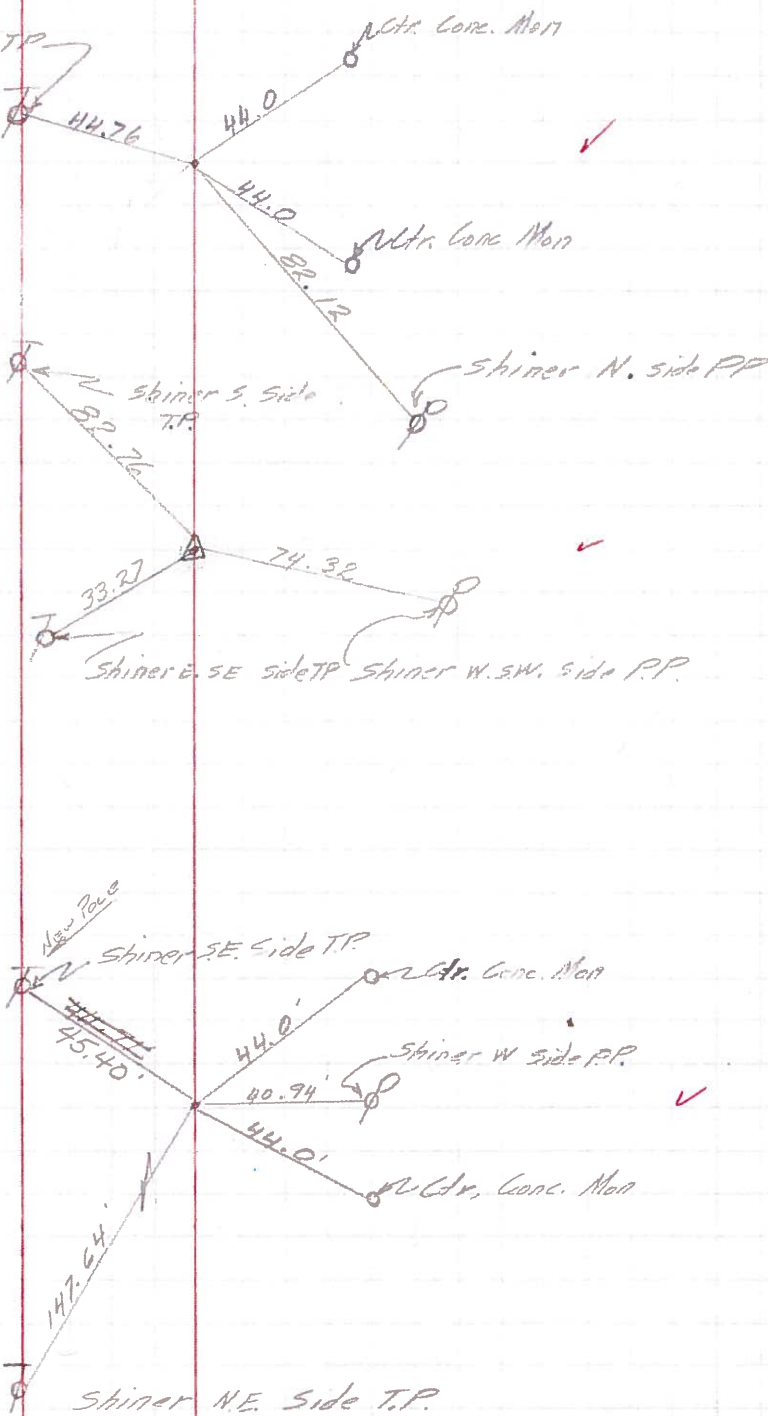 TP
Ctr. Conc. Mon
44.76
44.0
44.0
Ctr. Conc Mon
82.12
Shiner N. side PP
Shiner S. Side
T.P.
82.76
74.32
33.27
Shiner E. SE side TP
Shiner W. S.W. side P.P.
New Pole
Shiner S.E. Side T.P.
Ctr. Conc. Mon
45.40'
44.0'
Shiner W side P.P.
40.94'
44.0'
Ctr, Conc. Mon
147.64'
Shiner N.E. Side T.P.